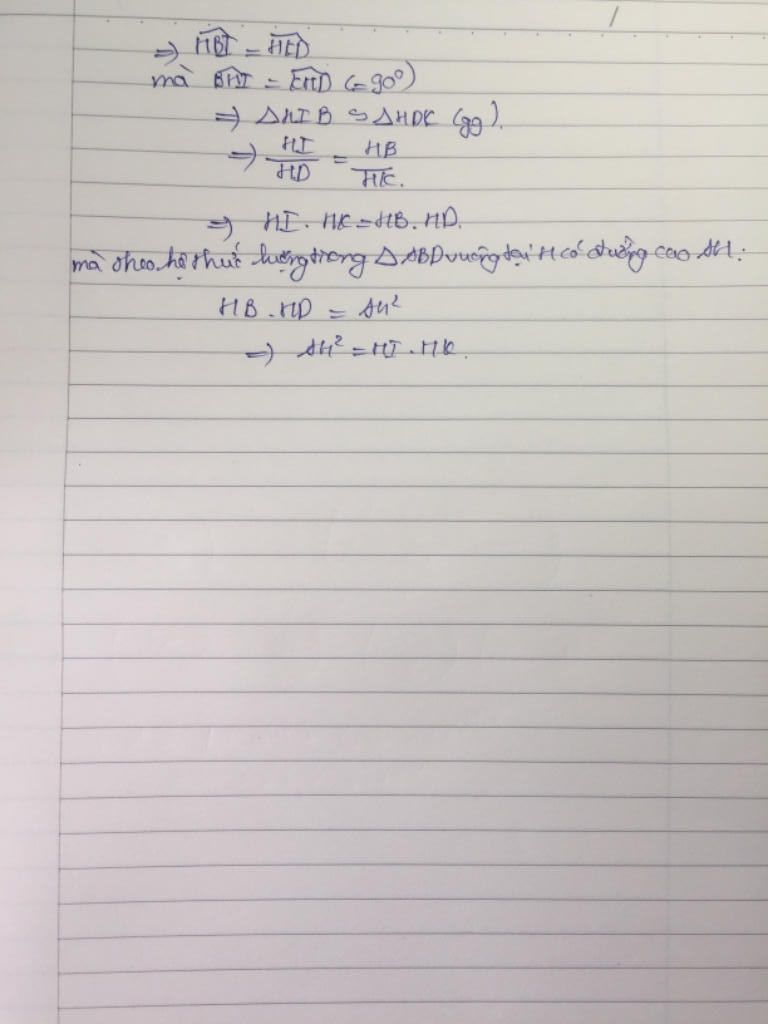 ⇒ \widehat{HBI} = \widehat{HED}
mà \widehat{BHI} = \widehat{EHD} (=90°)
⇒ ΔHIB ∽ ΔHDK (gg).
⇒ \frac{HI}{HD} = \frac{HB}{HK}.
⇒ HI . HK = HB . HD.
mà theo hệ thức lượng trong ΔABD vuông tại H có đường cao AH:
HB . HD = AH²
⇒ AH² = HI . HK.